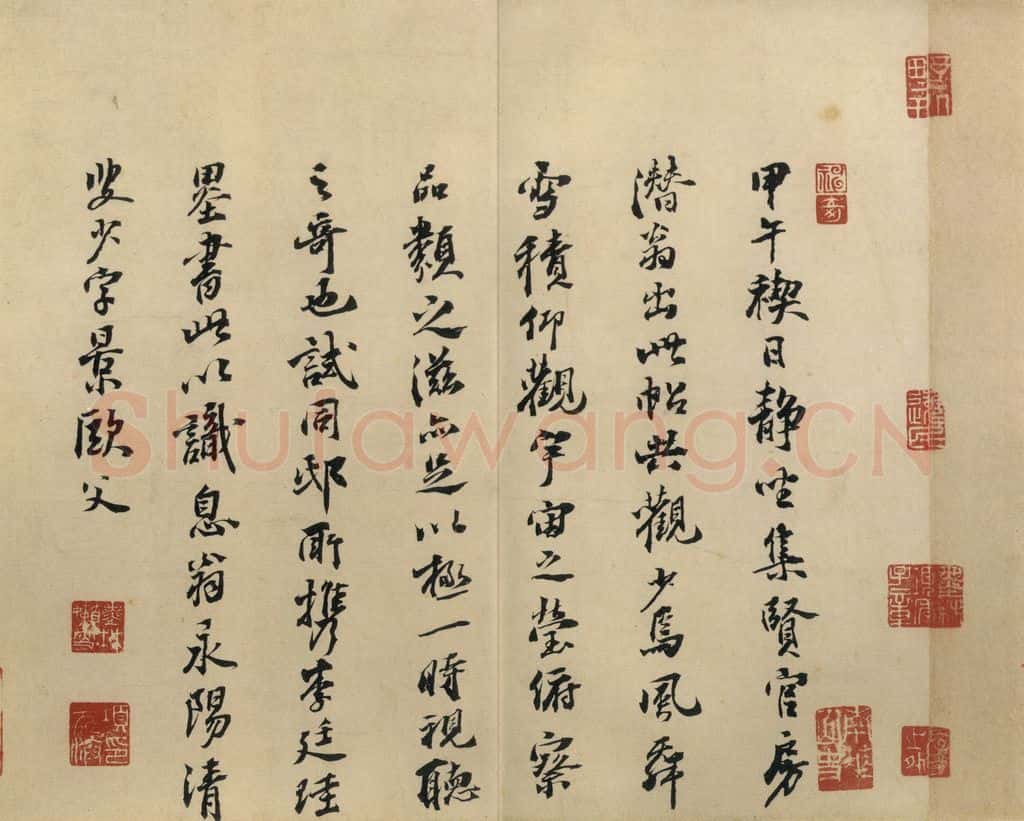 甲午禊日静坐集賢官房
潛翁出此帖共觀少焉風舞
雪積仰觀宇宙之瑩俯察
品類之滋亦足以極一時視聽
之奇也試同邸所携李廷珪
墨書此以識息翁永陽清
叟少字景歐父
Shufawang.CN